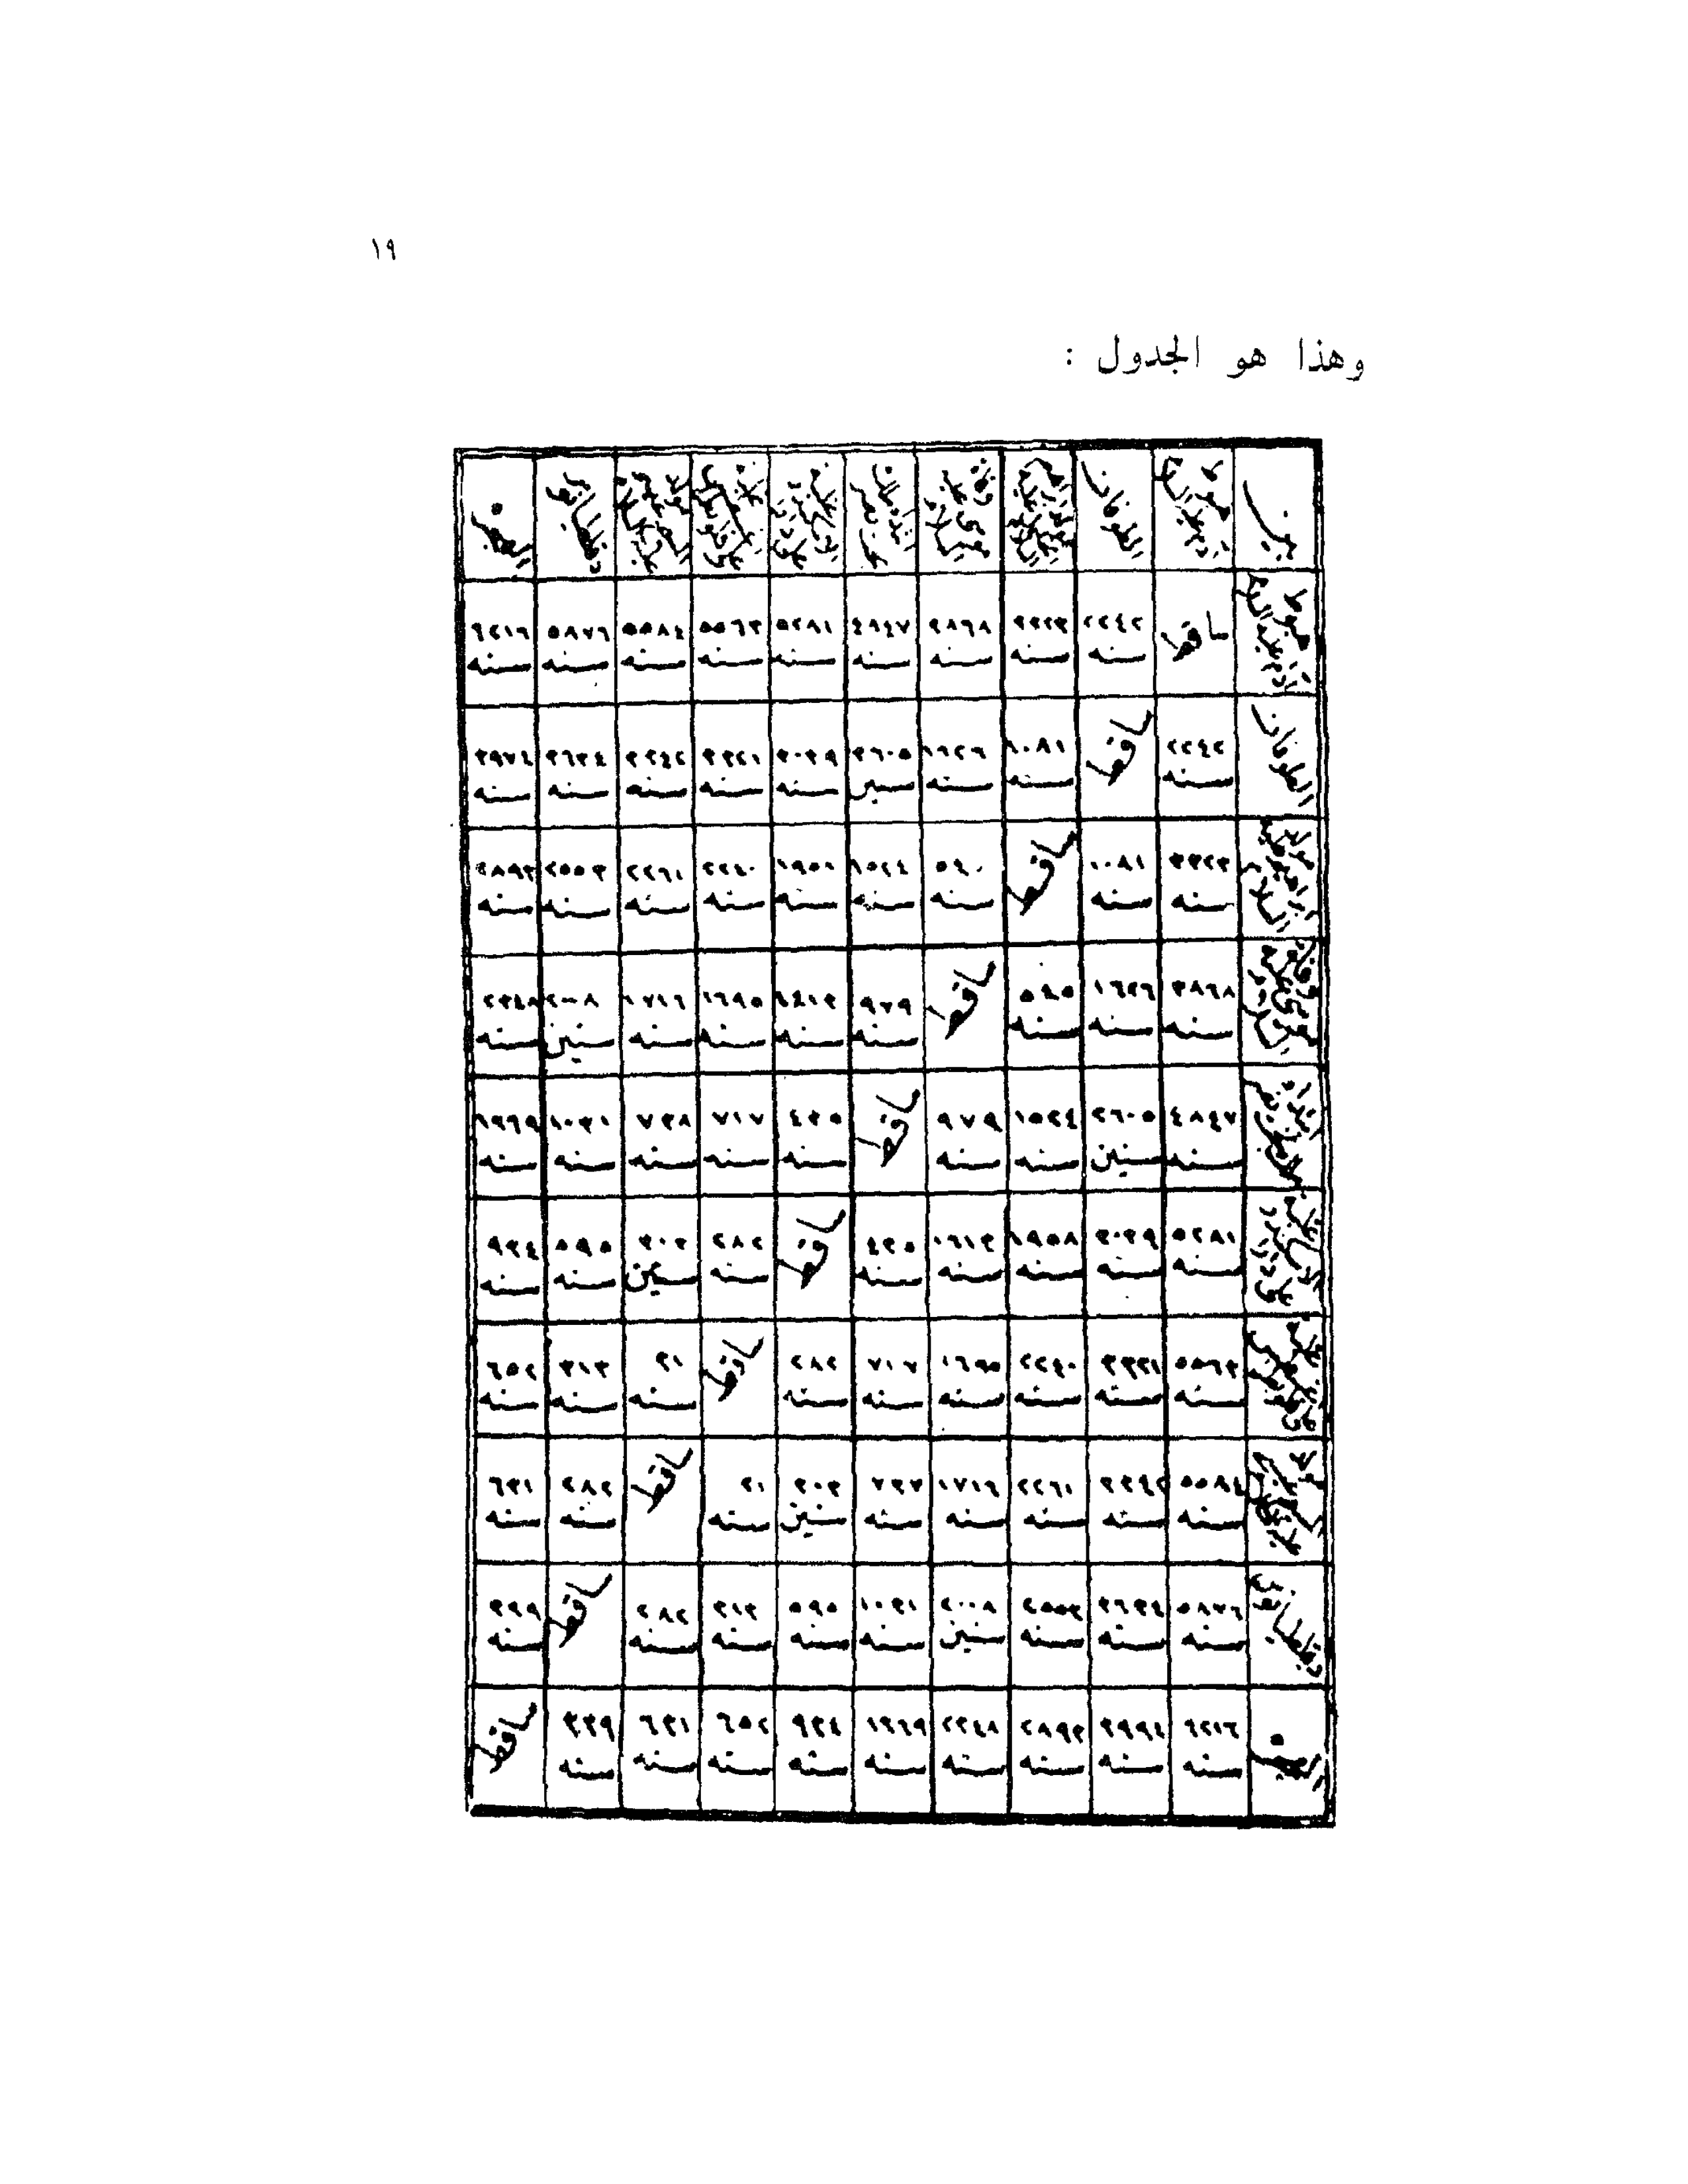 ١٩
وهذا هو الجدول :
بين هبوط آدم عليه السلام الطوفان وفاة موسى عليه السلام دقلطيانوس الهجرة
هبوط آدم عليه السلام ساقط ٢٢٤٢ سنه ٣٣٢٣ سنه ٣٨٦٨ سنه ٤٨٤٧ سنه ٥٢٨١ سنه ٥٥٦٣ سنه ٥٥٨٤ سنه ٥٨٧٦ سنه ٦٢١٦ سنه
الطوفان ٢٢٤٢ سنه ساقط ١٠٨١ سنه ١٦٢٦ سنه ٢٦٠٥ سنين ٣٠٣٩ سنه ٣٣٢١ سنه ٣٣٤٢ سنه ٣٦٣٤ سنه ٣٩٧٤ سنه
مولد ابراهيم عليه السلام ٣٣٢٣ سنه ١٠٨١ سنه ساقط ٥٤٠ سنه ١٥٢٤ سنه ١٩٥٨ سنه ٢٢٤٠ سنه ٢٢٦١ سنه ٢٥٥٣ سنه ٢٨٩٣ سنه
وفاة موسى عليه السلام ٣٨٦٨ سنه ١٦٢٦ سنه ٥٤٥ سنه ساقط ٩٧٩ سنه ١٤١٣ سنه ١٦٩٥ سنه ١٧١٦ سنه ٢٠٠٨ سنين ٢٣٤٨ سنه
٤٨٤٧ سنه ٢٦٠٥ سنين ١٥٢٤ سنه ٩٧٩ سنه ساقط ٤٣٥ سنه ٧١٧ سنه ٧٣٨ سنه ١٠٣١ سنه ١٣٦٩ سنه
٥٢٨١ سنه ٣٠٣٩ سنه ١٩٥٨ سنه ١٦١٣ سنه ٤٣٥ سنه ساقط ٢٨٢ سنه ٣٠٣ سنين ٥٩٥ سنه ٩٣٤ سنه
٥٥٦٣ سنه ٣٣٢١ سنه ٢٢٤٠ سنه ١٦٩٥ سنه ٧١٧ سنه ٢٨٢ سنه ساقط ٢١ سنه ٣١٣ سنه ٦٥٢ سنه
٥٥٨٤ سنه ٣٣٤٢ سنه ٢٢٦١ سنه ١٧١٦ سنه ٧٣٧ سنه ٣٠٣ سنين ٢١ سنه ساقط ٢٨٢ سنه ٦٣١ سنه
دقلطيانوس ٥٨٧٦ سنه ٣٦٣٤ سنه ٢٥٥٣ سنه ٢٠٠٨ سنين ١٠٣١ سنه ٥٩٥ سنه ٣١٣ سنه ٢٨٢ سنه ساقط ٣٣٩ سنه
الهجرة ٦٢١٦ سنه ٣٩٧٤ سنه ٢٨٩٣ سنه ٢٣٤٨ سنه ١٣٦٩ سنه ٩٣٤ سنه ٦٥٢ سنه ٦٣١ سنه ٣٣٩ سنه ساقط